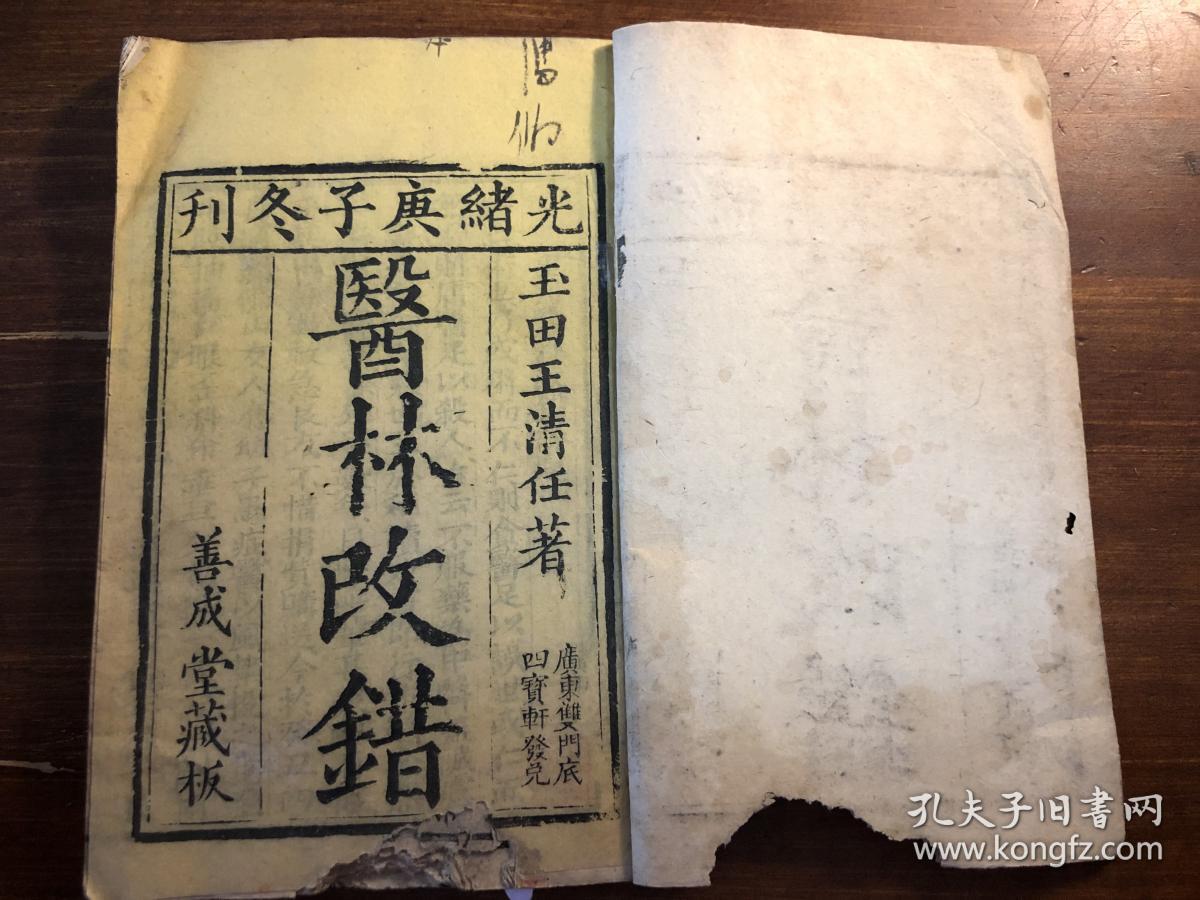 光緒庚子冬刊
玉田王清任著
廣東雙門底
四寶軒發兑
醫林改錯
善成堂藏板
孔夫子旧书网
www.kongfz.com